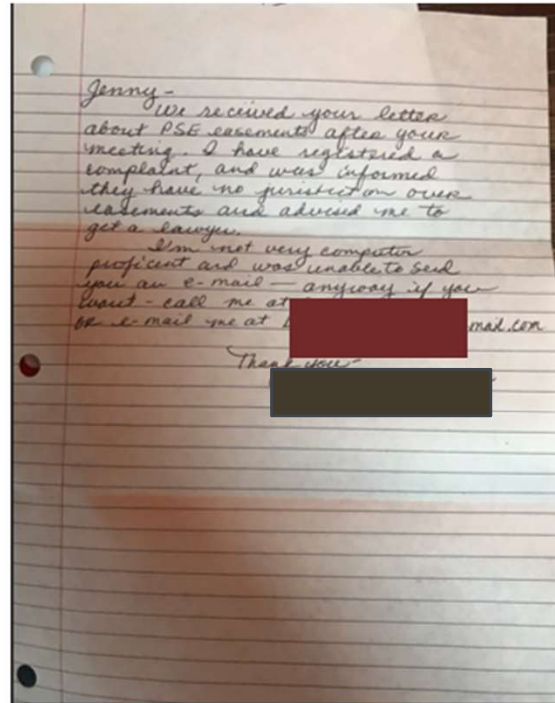 Jenny-
We received your letter
about PSE easements after your
meeting. I have registered a
complaint, and was informed
they have no jurisdiction over
easements and advised me to
get a lawyer.
I'm not very computer
proficent and was unable to send
you an e-mail — anyway if you
want - call me at
or e-mail me at
mail.com
Thank you-